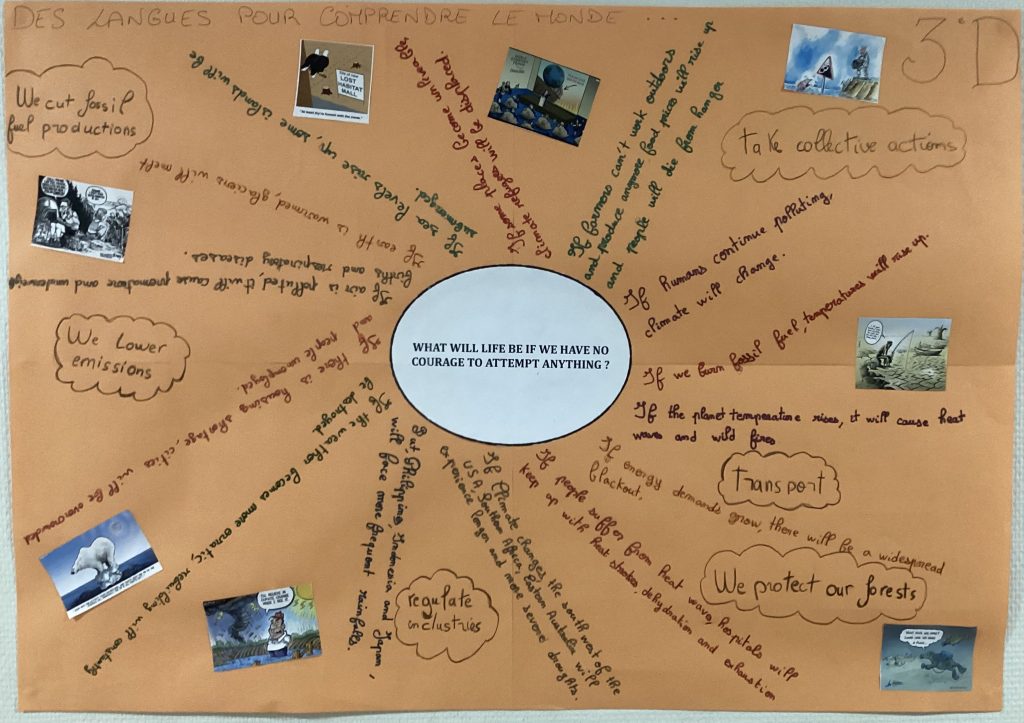 DES LANGUES POUR COMPRENDRE LE MONDE ...
3e D
We cut fossil
fuel productions
take collective actions
We Lower
emissions
Transport
We protect our forests
regulate
industries
WHAT WILL LIFE BE IF WE HAVE NO
COURAGE TO ATTEMPT ANYTHING ?
If sea levels rise up, some islands will be
submerged.
If some places become unliveable,
climate refugees will be displaced.
If farmers can't work outdoors
and produce anymore food prices will rise up
and people will die from hunger
If humans continue polluting,
climate will change.
If we burn fossil fuel, temperatures will rise up.
If the planet temperature rises, it will cause heat
waves and wild fires
If energy demands grow, there will be a widespread
blackout.
If people suffer from heat waves, hospitals will
keep up with heat strokes, dehydration and exhaustion
If climate changes, the south west of the
USA, Southern Africa, Eastern Australia will
experience longer and more severe droughts.
But, Philippines, Indonesia and Japan,
will face more frequent rainfalls.
If the weather becomes more erratic, rebuilding will constantly
be destroyed.
If there is housing shortage, cities will be overcrowded
and people unemployed.
If air is polluted, it will cause premature and underweight
births and respiratory diseases.
If earth is warmed, glaciers will melt
LOST
HABITAT
MALL